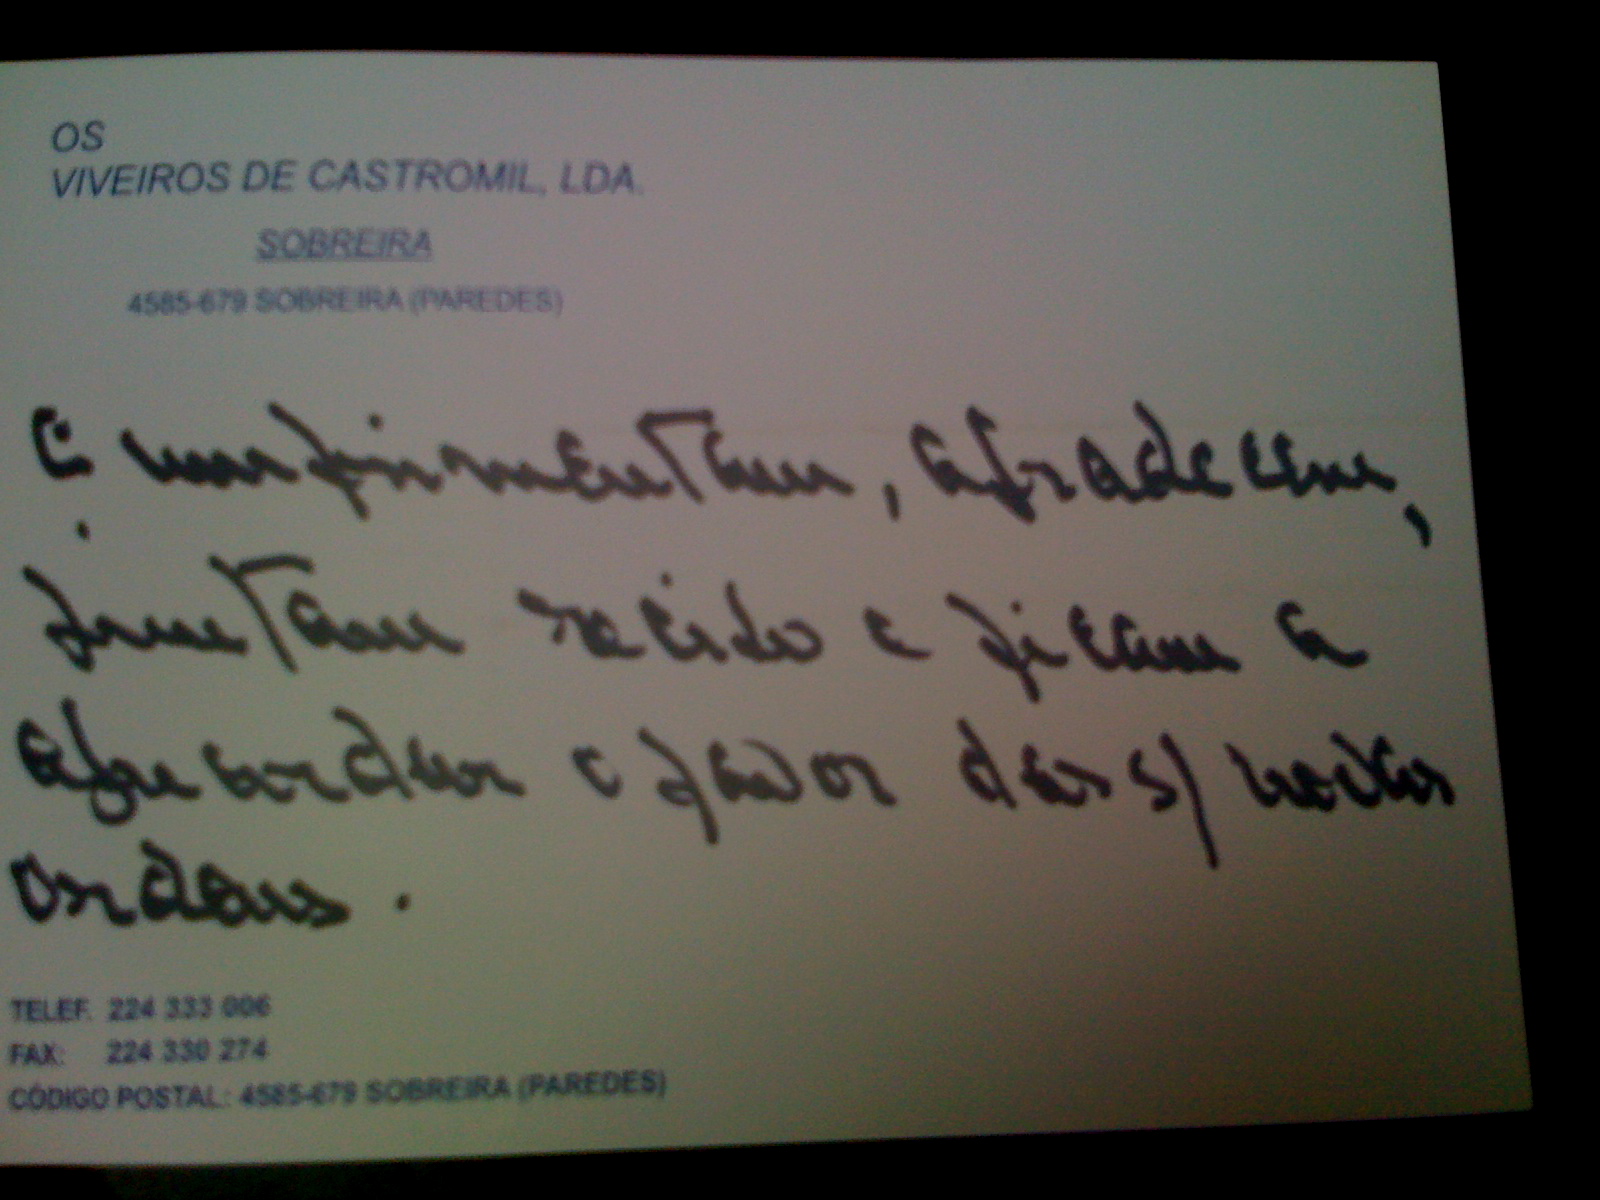 OS
VIVEIROS DE CASTROMIL, LDA.
SOBREIRA
4585-679 SOBREIRA (PAREDES)
Cumprimentam, agradecem,
juntam recibo e ficam a
aguardar o favor das s/ novas
ordens.
TELEF. 224 333 006
FAX: 224 330 274
CÓDIGO POSTAL: 4585-679 SOBREIRA (PAREDES)